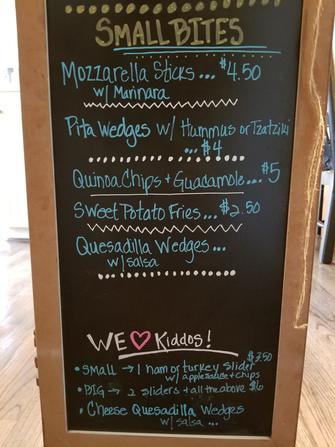 SMALL BITES
Mozzarella Sticks ... $4.50
w/ Marinara
Pita Wedges w/ Hummus or Tzatziki
... $4
Quinoa Chips + Guacamole... $5
Sweet Potato Fries... $2.50
Quesadilla Wedges ...
w/ salsa
WE ♡ Kiddos!
• SMALL → 1 ham or turkey slider $3.50
w/ applesauce + chips
• BIG → 2 sliders + all the above $6
• Cheese Quesadilla Wedges
w/ salsa ...